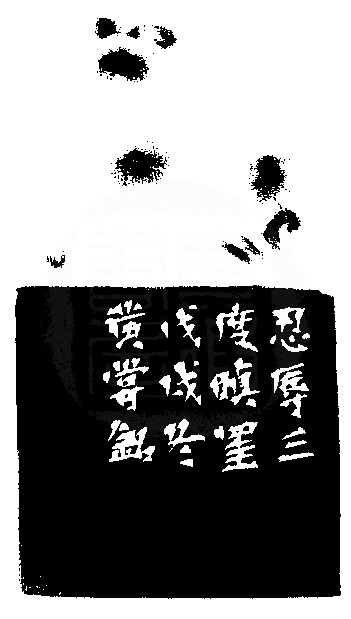 忍辱三
度瞋
戊戌冬
黄嘗銘